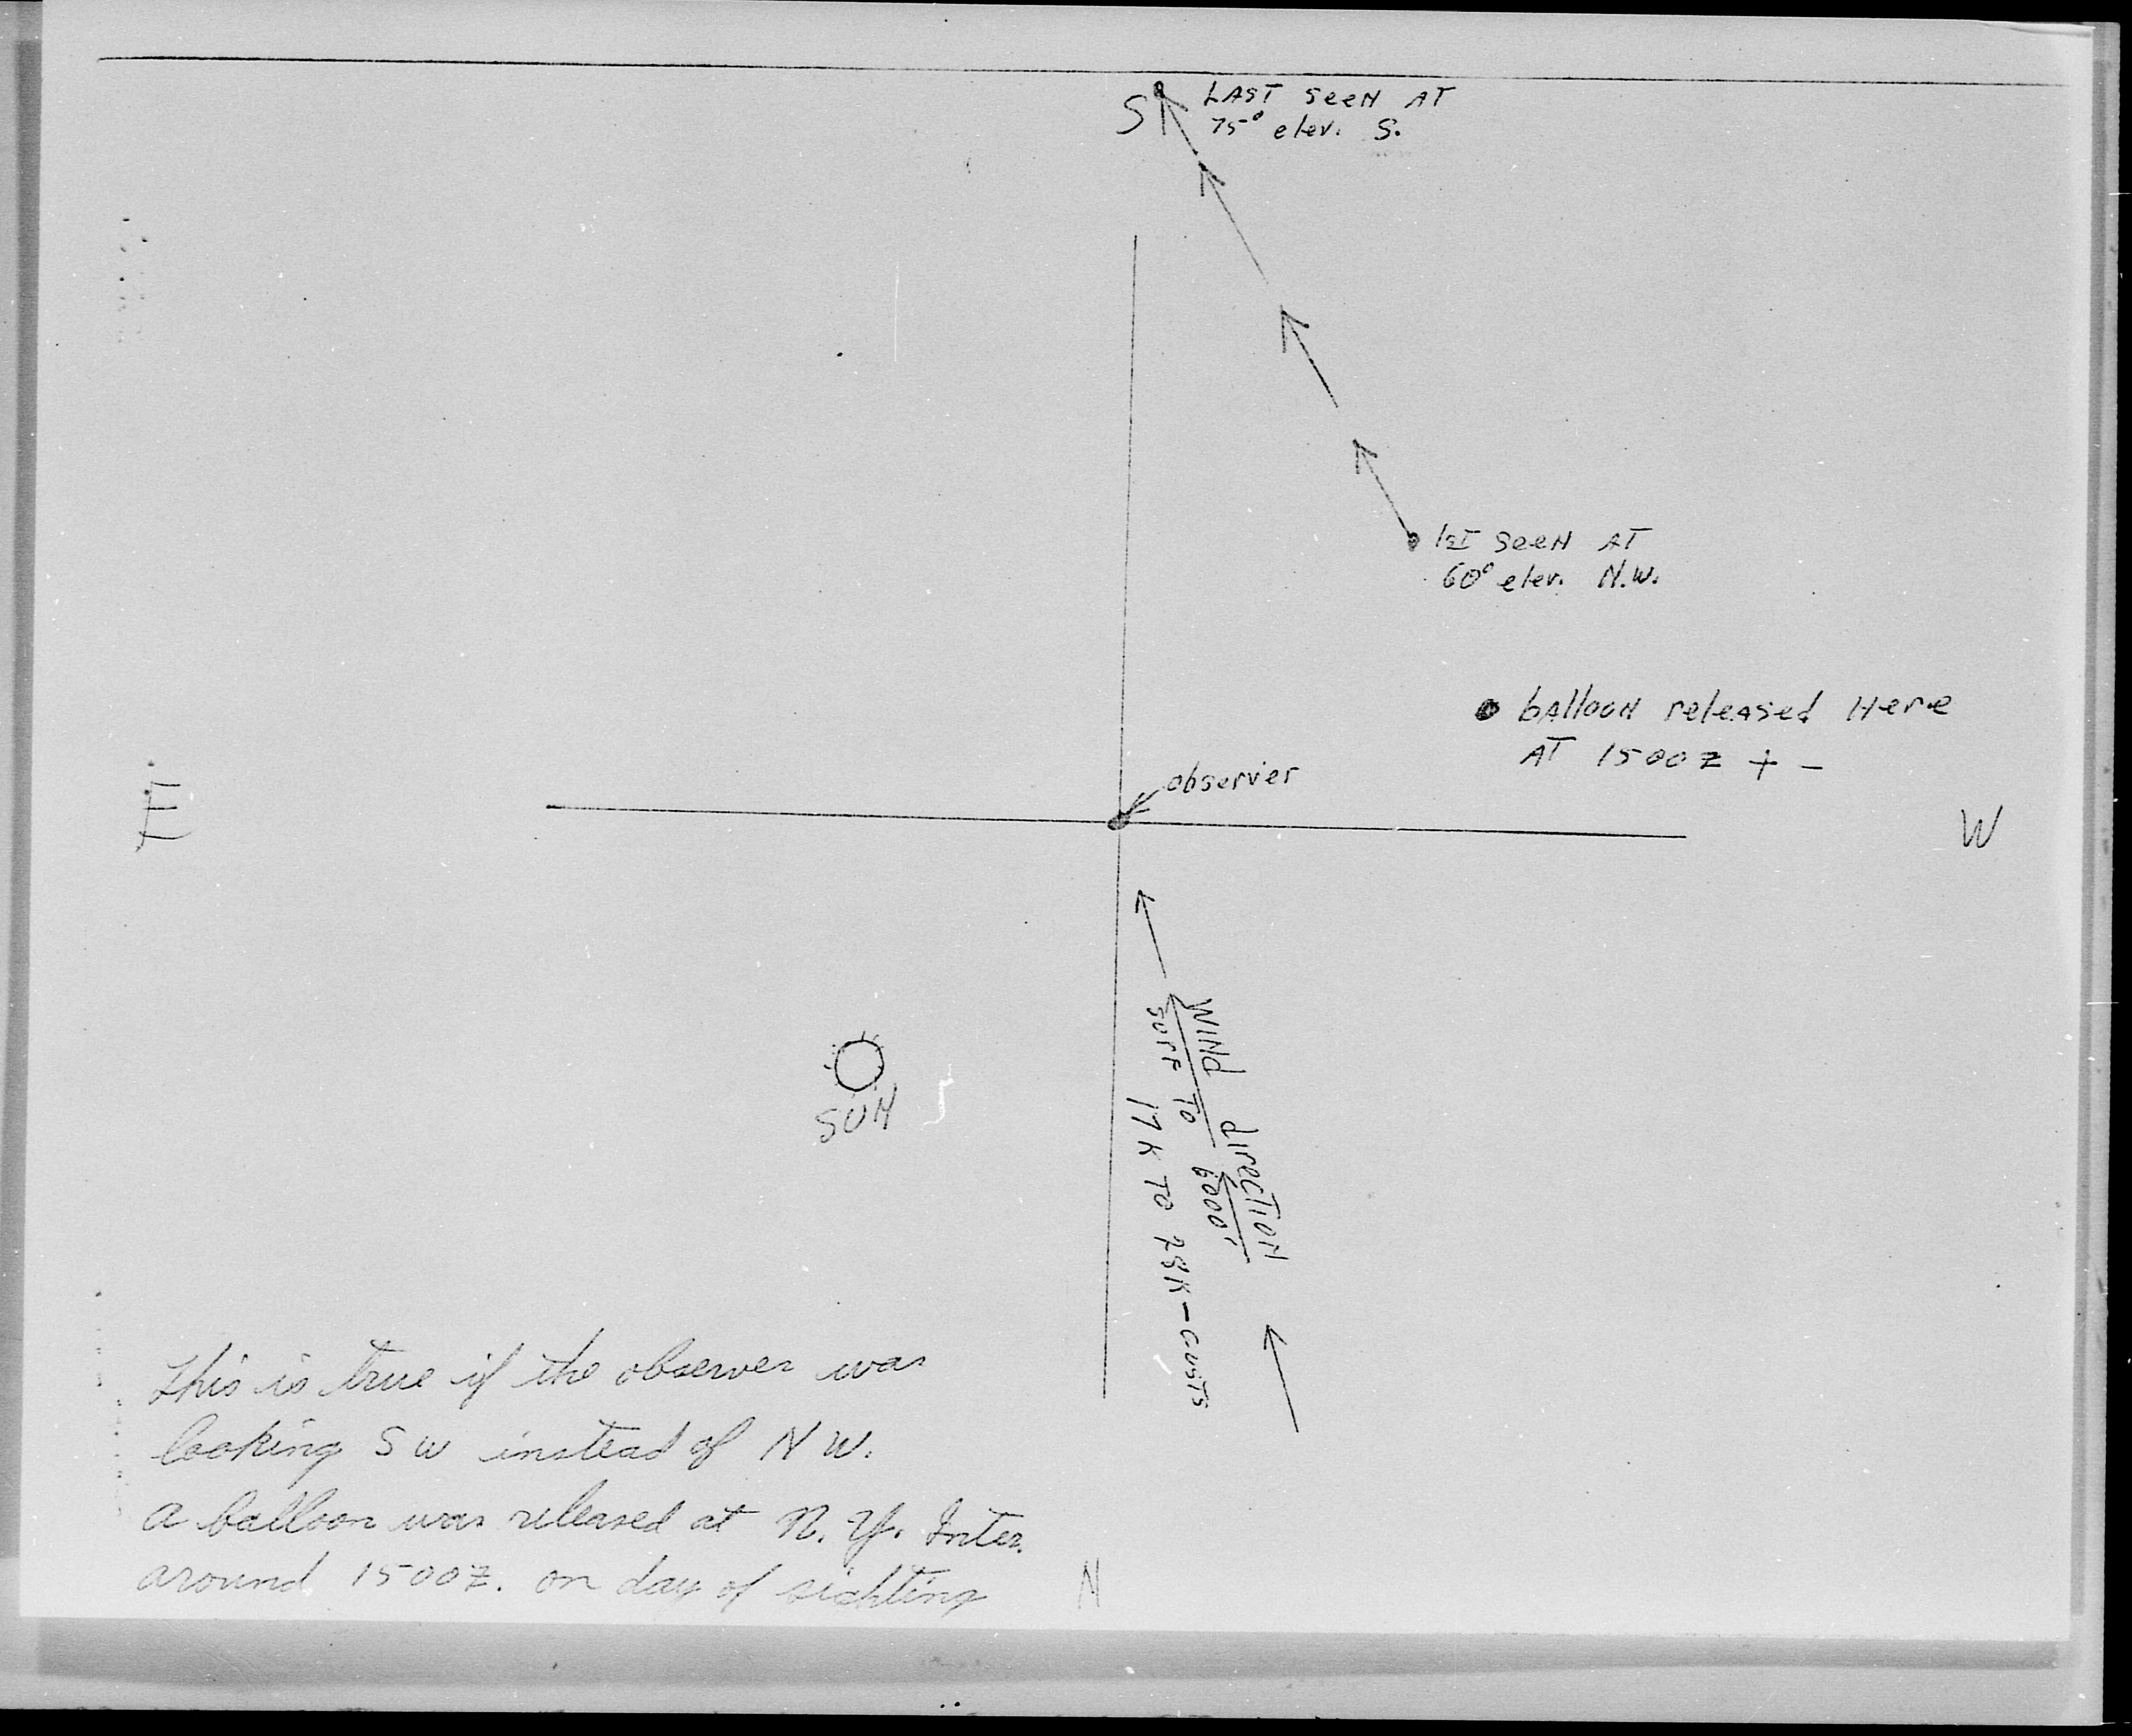 S
LAST seen AT
75° elev. S.
1st seen AT
60° elev. N.W.
balloon released Here
AT 1500 Z + -
observer
E
W
SUN
WIND direction
surf to 6000'
17K TO 28K - Gusts
This is true if the observer was
looking S W instead of N W.
a balloon was released at N. Y. Inter.
around 1500 Z. on day of sighting
N